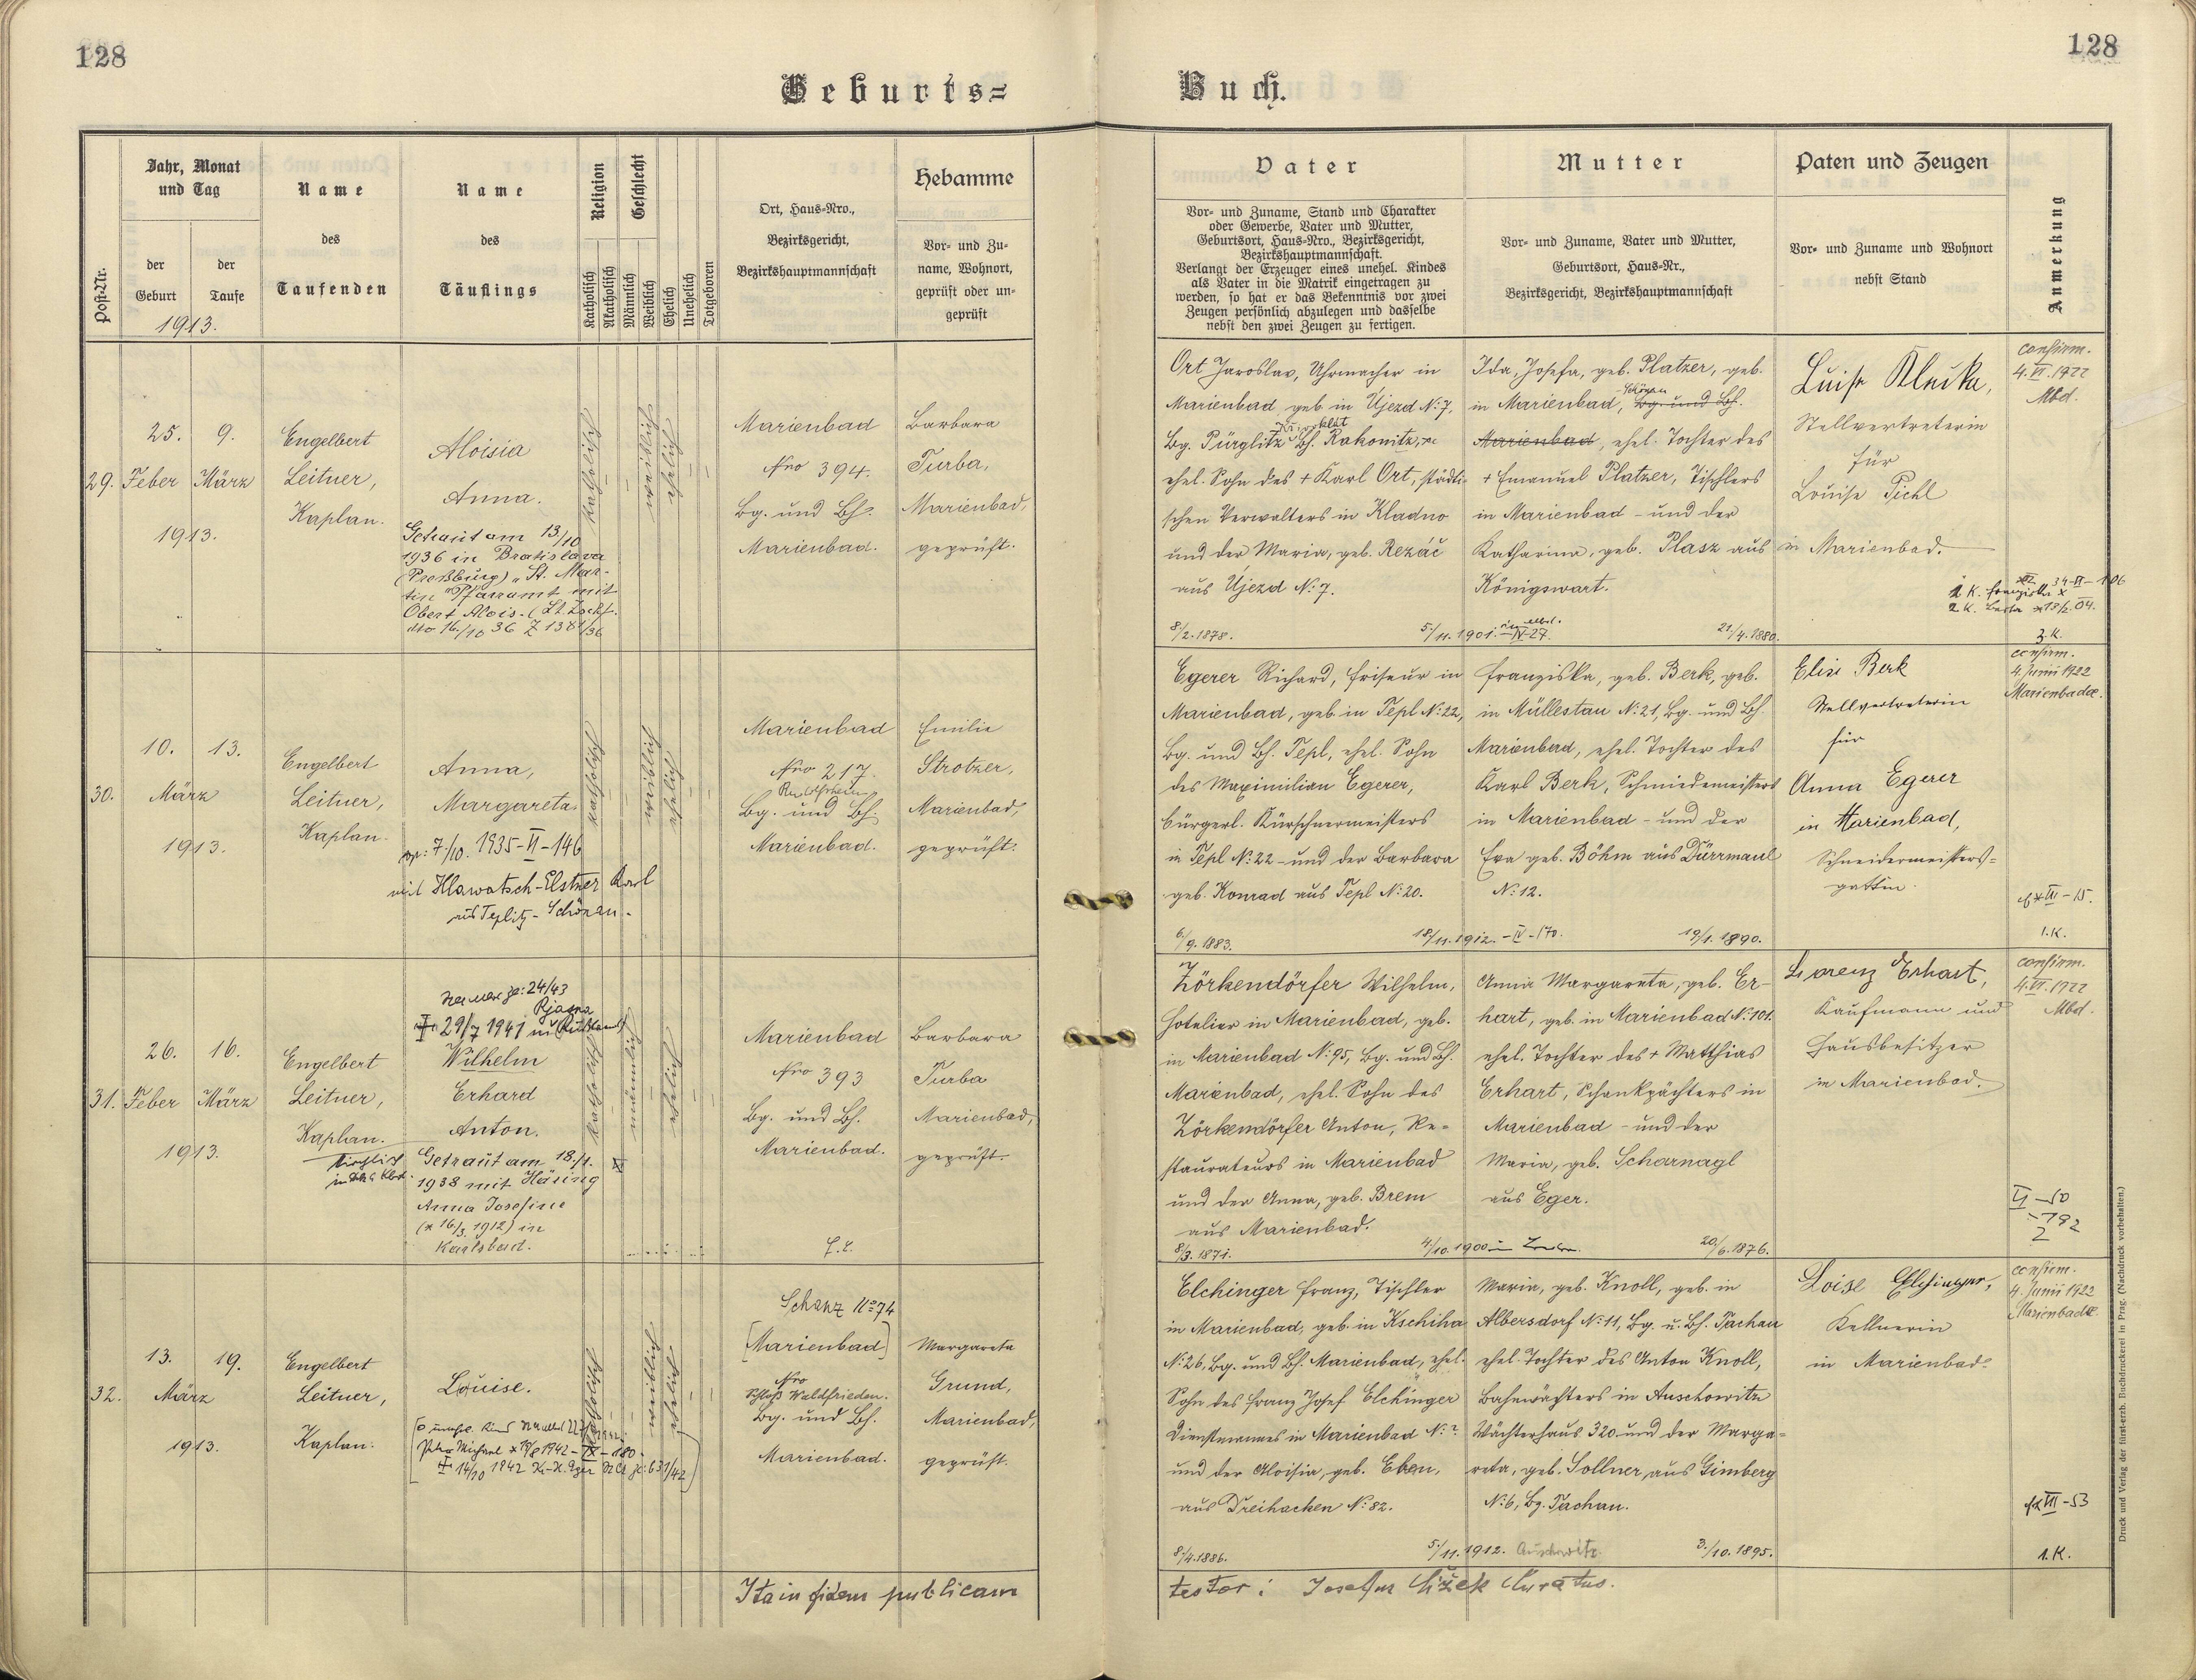 128
128
Geburts=
Buch.
Post-Nr.
Jahr, Monat
und Tag
der
Geburt
der
Taufe
1913.
Name
des
Taufenden
Name
des
Täuflings
Religion
Katholisch
Akatholisch
Geschlecht
Männlich
Weiblich
Ehelich
Unehelich
Totgeboren
Ort, Haus-Nro.,
Bezirksgericht,
Bezirkshauptmannschaft
Hebamme
Vor- und Zu-
name, Wohnort,
geprüft oder un-
geprüft
Vater
Vor- und Zuname, Stand und Charakter
oder Gewerbe, Vater und Mutter,
Geburtsort, Haus-Nro., Bezirksgericht,
Bezirkshauptmannschaft.
Verlangt der Erzeuger eines unehel. Kindes
als Vater in die Matrik eingetragen zu
werden, so hat er das Bekenntnis vor zwei
Zeugen persönlich abzulegen und dasselbe
nebst den zwei Zeugen zu fertigen.
Mutter
Vor- und Zuname, Vater und Mutter,
Geburtsort, Haus-Nr.,
Bezirksgericht, Bezirkshauptmannschaft
Paten und Zeugen
Vor- und Zuname und Wohnort
nebst Stand
Anmerkung
29.
25.
Feber
9.
März
1913.
Engelbert
Leitner,
Kaplan.
Aloisia
Anna.
Getraut am 13/10
1936 in Bratislava
(Preßburg) "St. Mar-
tin" Pfarramt mit
Obert Alois. (Lt. Zuschf.
dto 16./10 36 Z 1381/36
katholisch
weiblich
ehelich
Marienbad
Nro 394.
Bg. und Bh.
Marienbad.
Barbara
Turba,
Marienbad,
geprüft.
Ort Jaroslav, Uhrmacher in
Marienbad, geb. in Újezd N: 7,
Bg. Pürglitz Bh. Rakonitz,
ehel. Sohn des + Karl Ort, städti-
schen Verwalters in Kladno
und der Maria, geb. Rezáč
aus Újezd N: 7.
8/2. 1878.
5./11. 1901. IV-27.
Ida, Josefa, geb. Platzer, geb.
in Marienbad, Bg. und Bh.
Marienbad, ehel. Tochter des
+ Emanuel Platzer, Tischlers
in Marienbad - und der
Katharina, geb. Plasz aus
Königswart.
21/4. 1880.
Luise Kleika,
Stellvertreterin
für
Louise Pichl
in Marienbad.
confirm.
4. VI. 1922
Mbd.
3. K.
30.
10.
13.
März
1913.
Engelbert
Leitner,
Kaplan.
Anna,
Margareta.
7/10. 1935-VI-146
mit Hlawatsch-Elstner Karl
aus Teplitz-Schönau.
katholisch
weiblich
ehelich
Marienbad
Nro 217.
Bg. und Bh.
Marienbad.
Emilie
Strotzer,
Marienbad,
geprüft.
Egerer Richard, Friseur in
Marienbad, geb. in Tepl N: 22,
Bg. und Bh. Tepl, ehel. Sohn
des Maximilian Egerer,
bürgerl. Kürschnermeisters
in Tepl N: 22 - und der Barbara
geb. Konrad aus Tepl N: 20.
6/9. 1883.
18/11. 1912. - IV - 170.
Franziska, geb. Berk, geb.
in Müllestau N: 21, Bg. und Bh.
Marienbad, ehel. Tochter des
Karl Berk, Schmiedemeisters
in Marienbad - und der
Eva geb. Böhm aus Dürrmaul
N: 12.
19/1. 1890.
Elise Berk
Stellvertreterin
für
Anna Egerer
in Marienbad,
Schneidermeisters=
gattin.
confirm.
4. Junii 1922
Marienbadae.
1. K.
31.
26.
Feber
16.
März
1913.
Engelbert
Leitner,
Kaplan.
29/7 1941 in (Rußland)
Wilhelm
Erhard
Anton.
Getraut am 18./1.
1938 mit Häring
Anna Josefine
(* 16/3. 1912) in
Karlsbad.
katholisch
männlich
ehelich
Marienbad
Nro 393
Bg. und Bh.
Marienbad.
Barbara
Turba
Marienbad,
geprüft.
Zörkendörfer Wilhelm,
Hotelier in Marienbad, geb.
in Marienbad N: 95, Bg. und Bh.
Marienbad, ehel. Sohn des
Zörkendörfer Anton, Re=
staurateurs in Marienbad
und der Anna, geb. Brem
aus Marienbad.
8/3. 1871.
4./10. 1900
Anna Margareta, geb. Er-
hart, geb. in Marienbad N: 101.
ehel. Tochter des + Matthias
Erhart, Schankpächters in
Marienbad - und der
Maria, geb. Scharnagl
aus Eger.
20/6. 1876.
Lorenz Erhart,
Kaufmann und
Hausbesitzer
in Marienbad.
confirm.
4. VI. 1922
Mbd.
32.
13.
19.
März
1913.
Engelbert
Leitner,
Kaplan.
Louise.
katholisch
weiblich
ehelich
Schanz No 74
[Marienbad]
Nro
Schloß Waldfrieden.
Bg. und Bh.
Marienbad.
Margareta
Grund,
Marienbad,
geprüft.
Elchinger Franz, Tischler
in Marienbad, geb. in Kschiha
N: 26, Bg. und Bh. Marienbad, ehel.
Sohn des Franz Josef Elchinger
Dienstmannes in Marienbad N: ?
und der Aloisia, geb. Eben,
aus Dreihacken N: 82.
8/4. 1886.
5/11. 1912. Auschowitz.
Maria, geb. Knoll, geb. in
Albersdorf N: 11, Bg. u. Bh. Tachau
ehel. Tochter des Anton Knoll,
Bahnwächters in Auschowitz
Wächterhaus 320 und der Marga=
reta, geb. Sollner, aus Gimberg
N: 6, Bg. Tachau.
3./10. 1895.
Loise Elchinger,
Kellnerin
in Marienbad.
confirm.
4. Junii 1922
Marienbadae.
1. K.
Ita in fidem publicam
testor: Josefus Čížek Curatus.
Druck und Verlag der fürst-erzb. Buchdruckerei in Prag. (Nachdruck vorbehalten.)